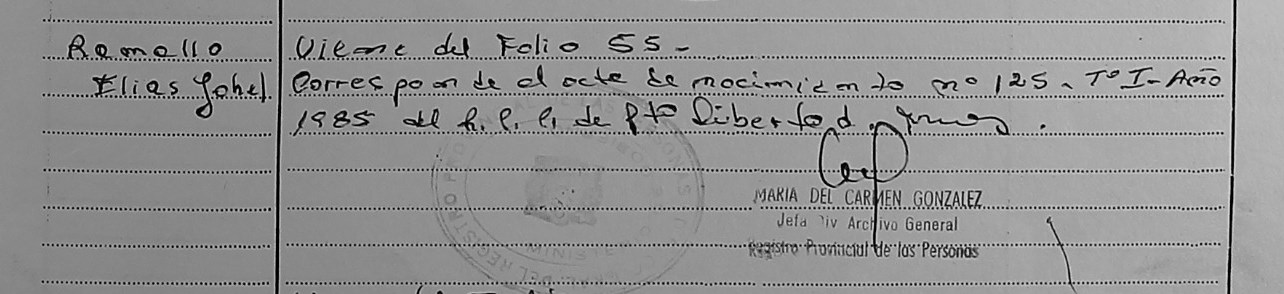 Ramallo
Elias Yohel
Viene del Folio 55-
Corresponde al acta de nacimiento nº 125 - Tº I - Año
1985 del R. P. P. de Pto Libertad.
MARIA DEL CARMEN GONZALEZ
Jefa Div Archivo General
Registro Provincial de las Personas